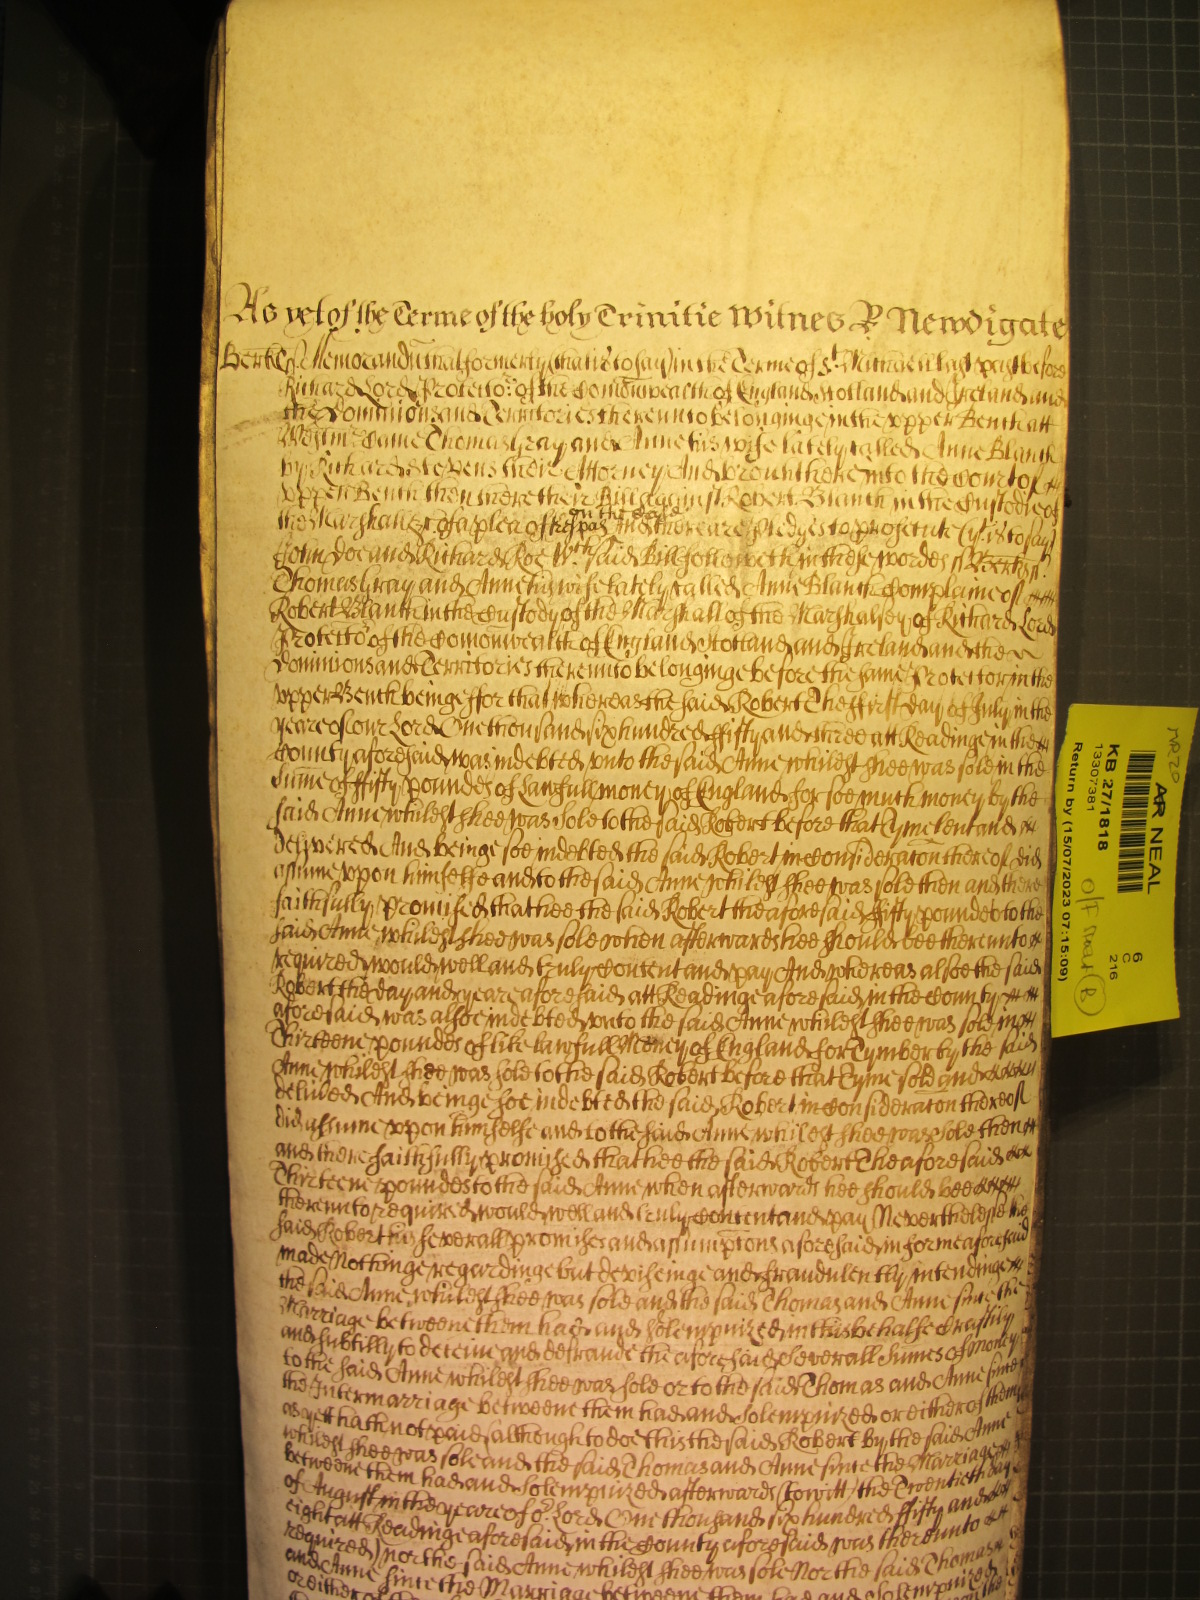 As yet of the Terme of the holy Trinitie Witnes R Newdigate
Berks ss. Memorandum that formerly that is to say in the Terme of St. Michaell last past before
Richard Lord Protector of the Comonwealth of England Scotland and Ireland and
the Dominions and Territories thereunto belonginge in the upper Bench att
Westm Came Thomas Gray and Anne his wife lately called Anne Blanch
by Richard Stevens their Attorney And brought here into the Court of
upper Bench then there their Bill against Robert Blanch in the Custodie of
the Marshall &c. of a plea of trespas on the Case And there are pledges to prosecute (yt. is to say)
John Doe and Richard Roe Wch said Bill followeth in these wordes ss Berks ss.
Thomas Gray and Anne his wife lately called Anne Blanch Complaine of
Robert Blanch in the Custody of the Marshall of the Marshalsey of Richard Lord
Protector of the Comonwealth of England Scotland and Ireland and the
Dominions and Territories thereunto belonginge before the same Protector in the
upper Bench beinge ffor that whereas the said Robert The ffirst day of July in the
yeare of our Lord One thousand six hundred ffifty and three att Readinge in the
County aforesaid was indebted unto the said Anne whilest shee was sole in the
sume of ffifty poundes of Lawfull money of England for soe much money by the
said Anne whilest shee was sole to the said Robert before that tyme lent and
delivered And beinge soe indebted the said Robert in Consideraton thereof did
assume upon himselfe and to the said Anne whilest shee was sole then and there
faithfully promised that hee the said Robert the aforesaid ffifty poundes to the
said Anne whilest shee was sole when afterwards hee should bee thereunto
required would well and truly Content and pay And whereas alsoe the said
Robert the day and yeare aforesaid att Readinge aforesaid in the County
aforesaid was alsoe indebted unto the said Anne whilest shee was sole in
Thirteene poundes of like lawfull Money of England for Tymber by the said
Anne whilest shee was sole to the said Robert before that tyme sold and
delivered And beinge soe indebted the said Robert in Consideraton thereof
did assume upon himselfe and to the said Anne whilest shee was sole then
and there faithfully promised that hee the said Robert The aforesaid
Thirteene poundes to the said Anne when afterwards hee should bee
thereunto required would well and truly Content and pay Neverthelesse the
said Robert his severall promises and assumptons aforesaid in forme aforesaid
made Nothinge regardinge but deviseinge and fraudulently intendinge
the said Anne whilest shee was sole and the said Thomas and Anne since the
Marriage betweene them had and solempnized in this behalfe Craftily
and subtilly to deceive and defraude the aforesaid severall sumes of money
to the said Anne whilest shee was sole or to the said Thomas and Anne since
the Intermarriage betweene them had and solempnized or either of them
as yett hath not paid although to doe this the said Robert by the said Anne
whilest shee was sole and the said Thomas and Anne since the Marriage
betweene them had and solempnized afterwards (to witt) the Twentieth day
of August in the yeare of or Lord One thousand six hundred ffifty and
eight att Readinge aforesaid in the County aforesaid was thereunto
required) nor the said Anne whilest shee was sole Nor the said Thomas
and Anne since the Marriage betweene them had and solempnized
or either of
AR NEAL
KB 27/1818
13307381
Return by (15/07/2023 07:15:09)
6
C
216